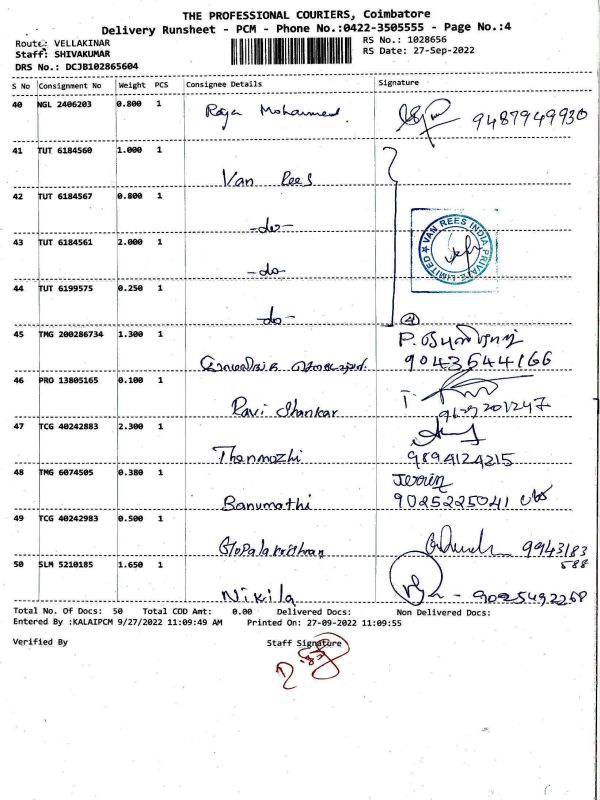 THE PROFESSIONAL COURIERS, Coimbatore
Delivery Runsheet - PCM - Phone No.:0422-3505555 - Page No.:4
Route: VELLAKINAR
RS No.: 1028656
Staff: SHIVAKUMAR
RS Date: 27-Sep-2022
DRS No.: DCJB102865604
S No Consignment No Weight PCS Consignee Details Signature
40 NGL 2406203 0.800 1 Raja Mohammed 9487949930
41 TUT 6184560 1.000 1
Van Rees
42 TUT 6184567 0.800 1
-do-
43 TUT 6184561 2.000 1
-do-
VAN REES INDIA PRIVATE LIMITED
44 TUT 6199575 0.250 1
-do-
4
45 TMG 200286734 1.300 1
9043544166
46 PRO 13805165 0.100 1
Ravi Shankar
47 TCG 40242883 2.300 1
Thenmozhi 9894124215
48 TMG 6074505 0.380 1
Banumathi 9025225041
49 TCG 40242983 0.500 1
Gopalakrithnan 9943183
588
50 SLM 5210185 1.650 1
Nikila - 9025492268
Total No. Of Docs: 50 Total COD Amt: 0.00 Delivered Docs: Non Delivered Docs:
Entered By :KALAIPCM 9/27/2022 11:09:49 AM Printed On: 27-09-2022 11:09:55
Verified By Staff Signature